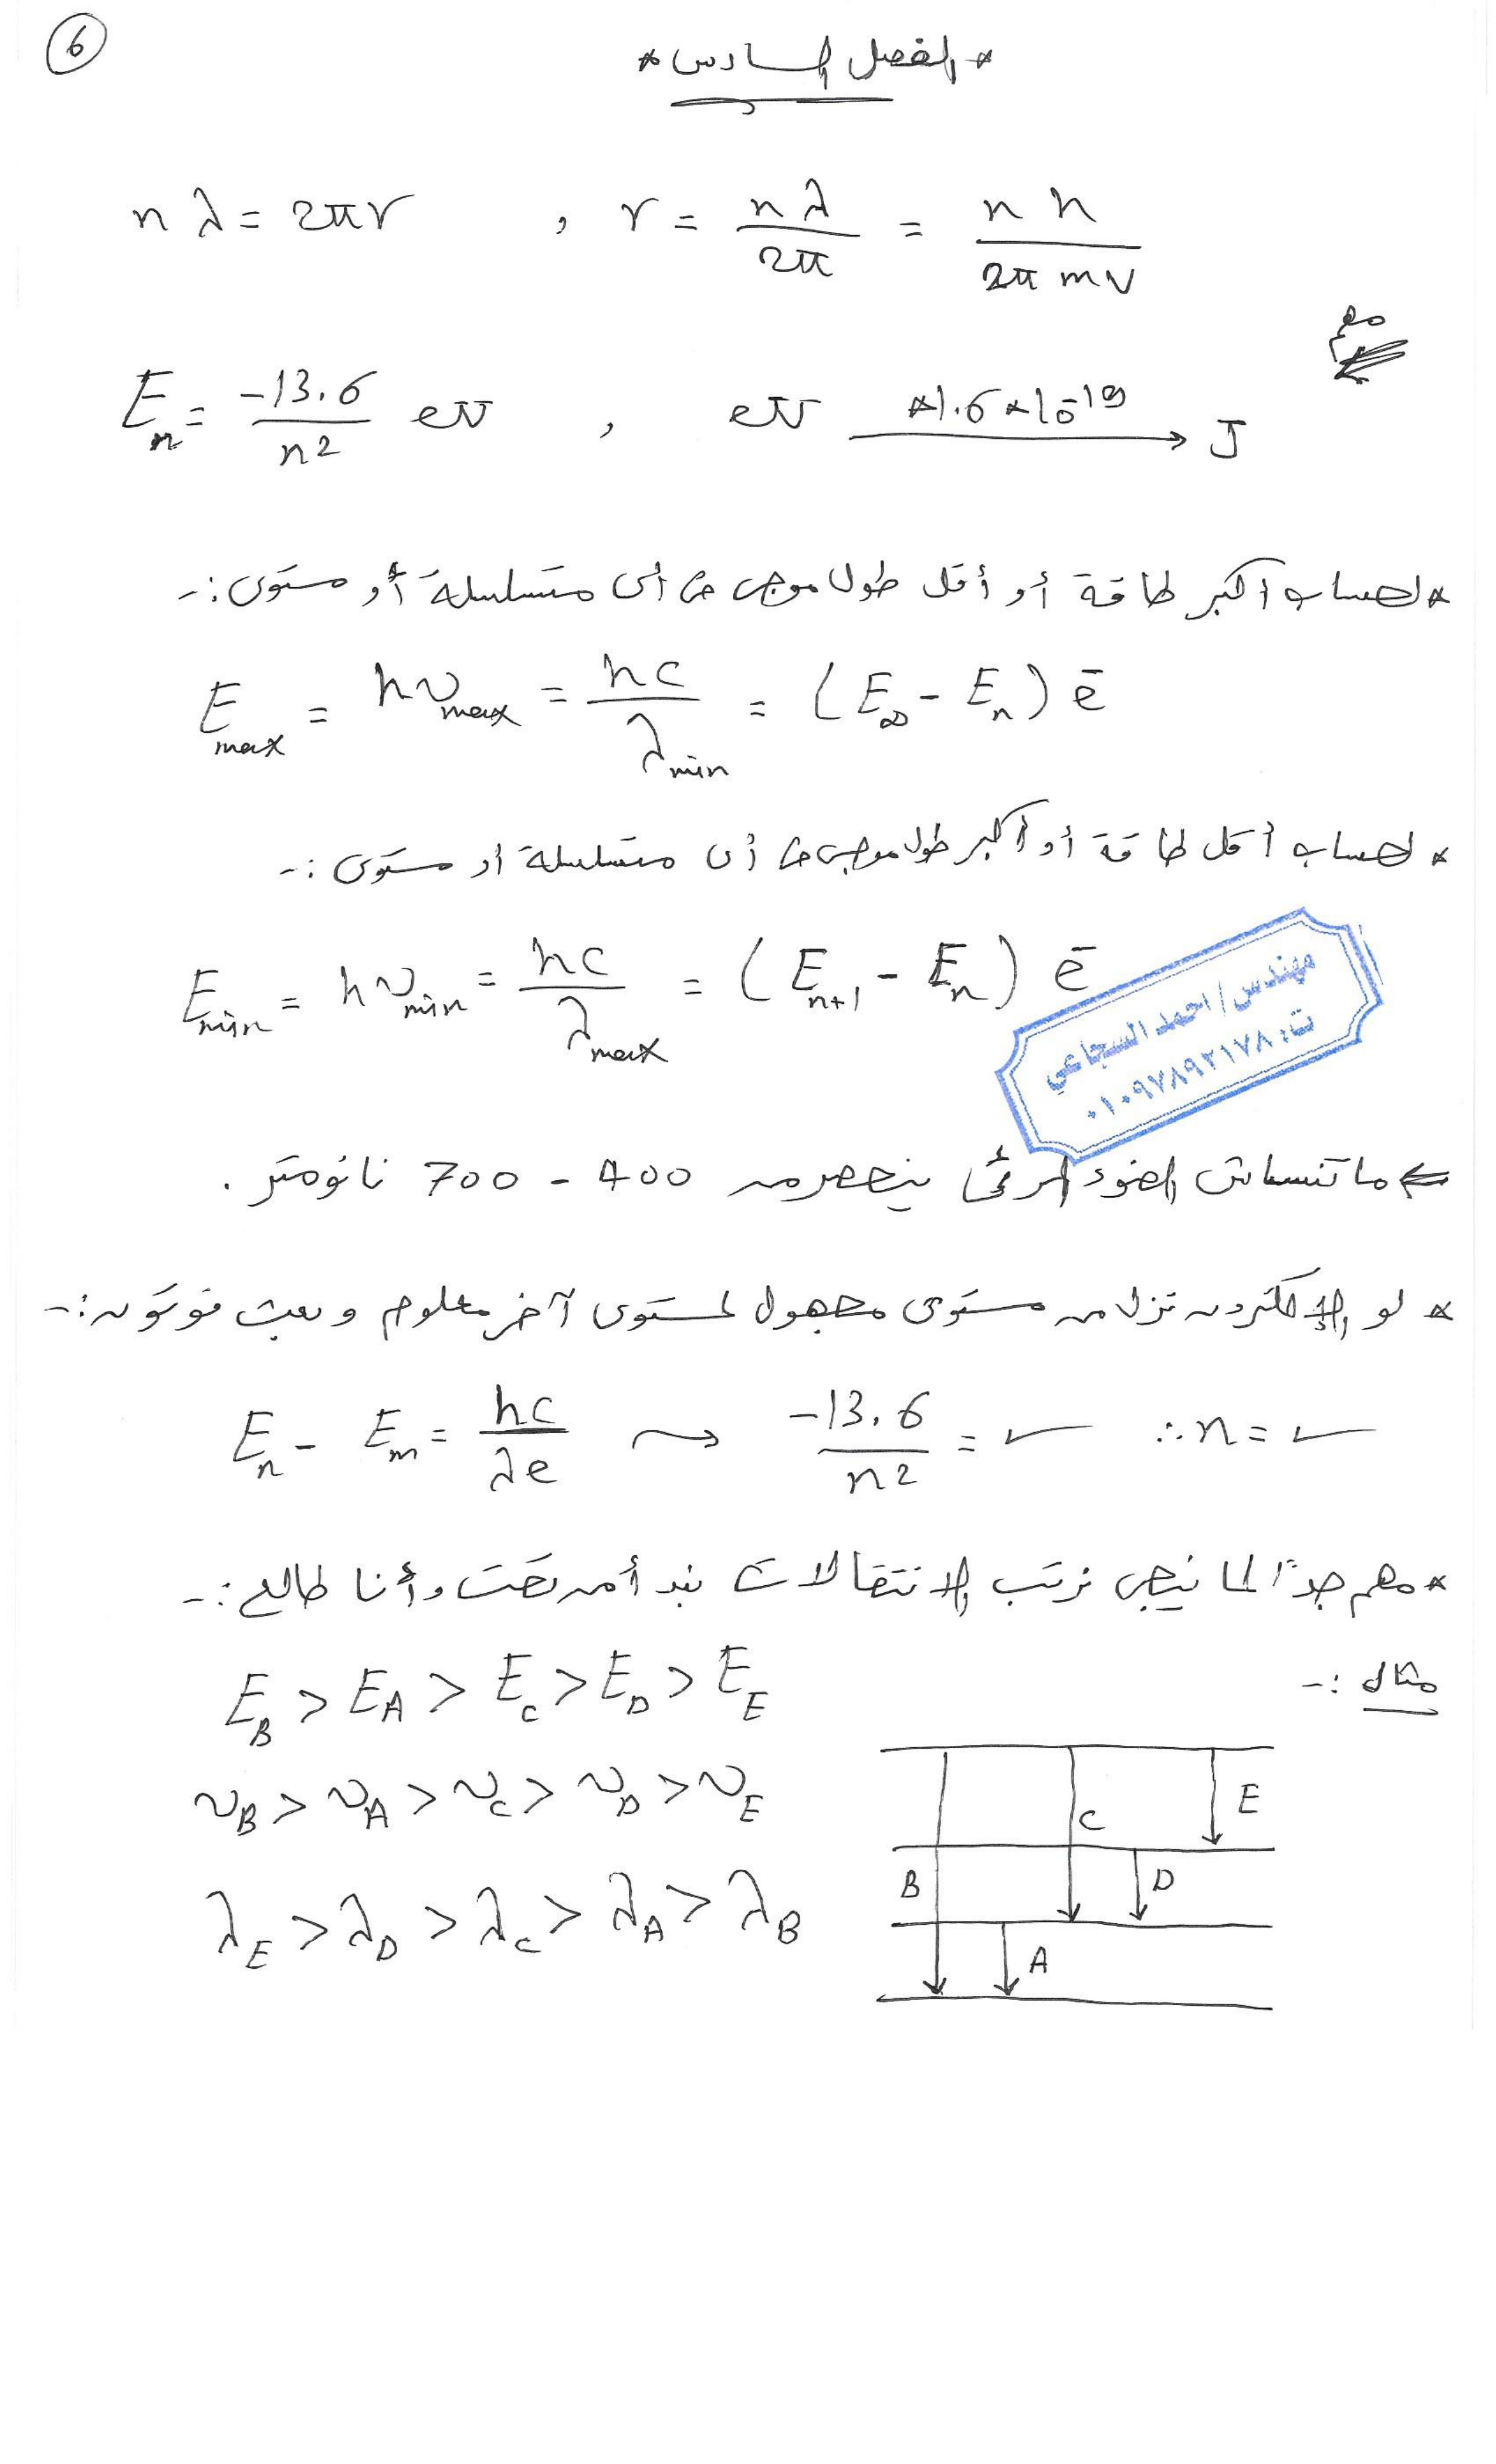 6
* الفصل السادس *
nλ = 2πr , r = nλ / 2π = nh / 2π mv
مهم
Eₙ = -13.6 / n² eV , eV ×1.6×10⁻¹⁹ → J
* لحساب أكبر طاقة أو أقل طول موجى فى أى متسلسلة أو مستوى :-
E max = hν max = hc / λ min = (E∞ - Eₙ) e⁻
* لحساب أقل طاقة أو أكبر طول موجى فى أى متسلسلة أو مستوى :-
E min = hν min = hc / λ max = (Eₙ₊₁ - Eₙ) e⁻
مهندس / احمد السجاعي
ت: ٠١٠٩٧٨٩٢١٧٨
← ماتنساش الضوء المرئى ينحصر من 400 - 700 نانومتر .
* لو الإلكترون نزل من مستوى مجهول لمستوى آخر معلوم وبعث فوتون :-
Eₙ - Eₘ = hc / λe ⇝ -13.6 / n² = ✓ ∴ n = ✓
* مهم جدًا لما نيجى نرتب الانتقالات نبدأ من تحت وأنا طالع :-
مثال :-
E_B > E_A > E_C > E_D > E_E
ν_B > ν_A > ν_C > ν_D > ν_E
λ_E > λ_D > λ_C > λ_A > λ_B
E
C
B
D
A